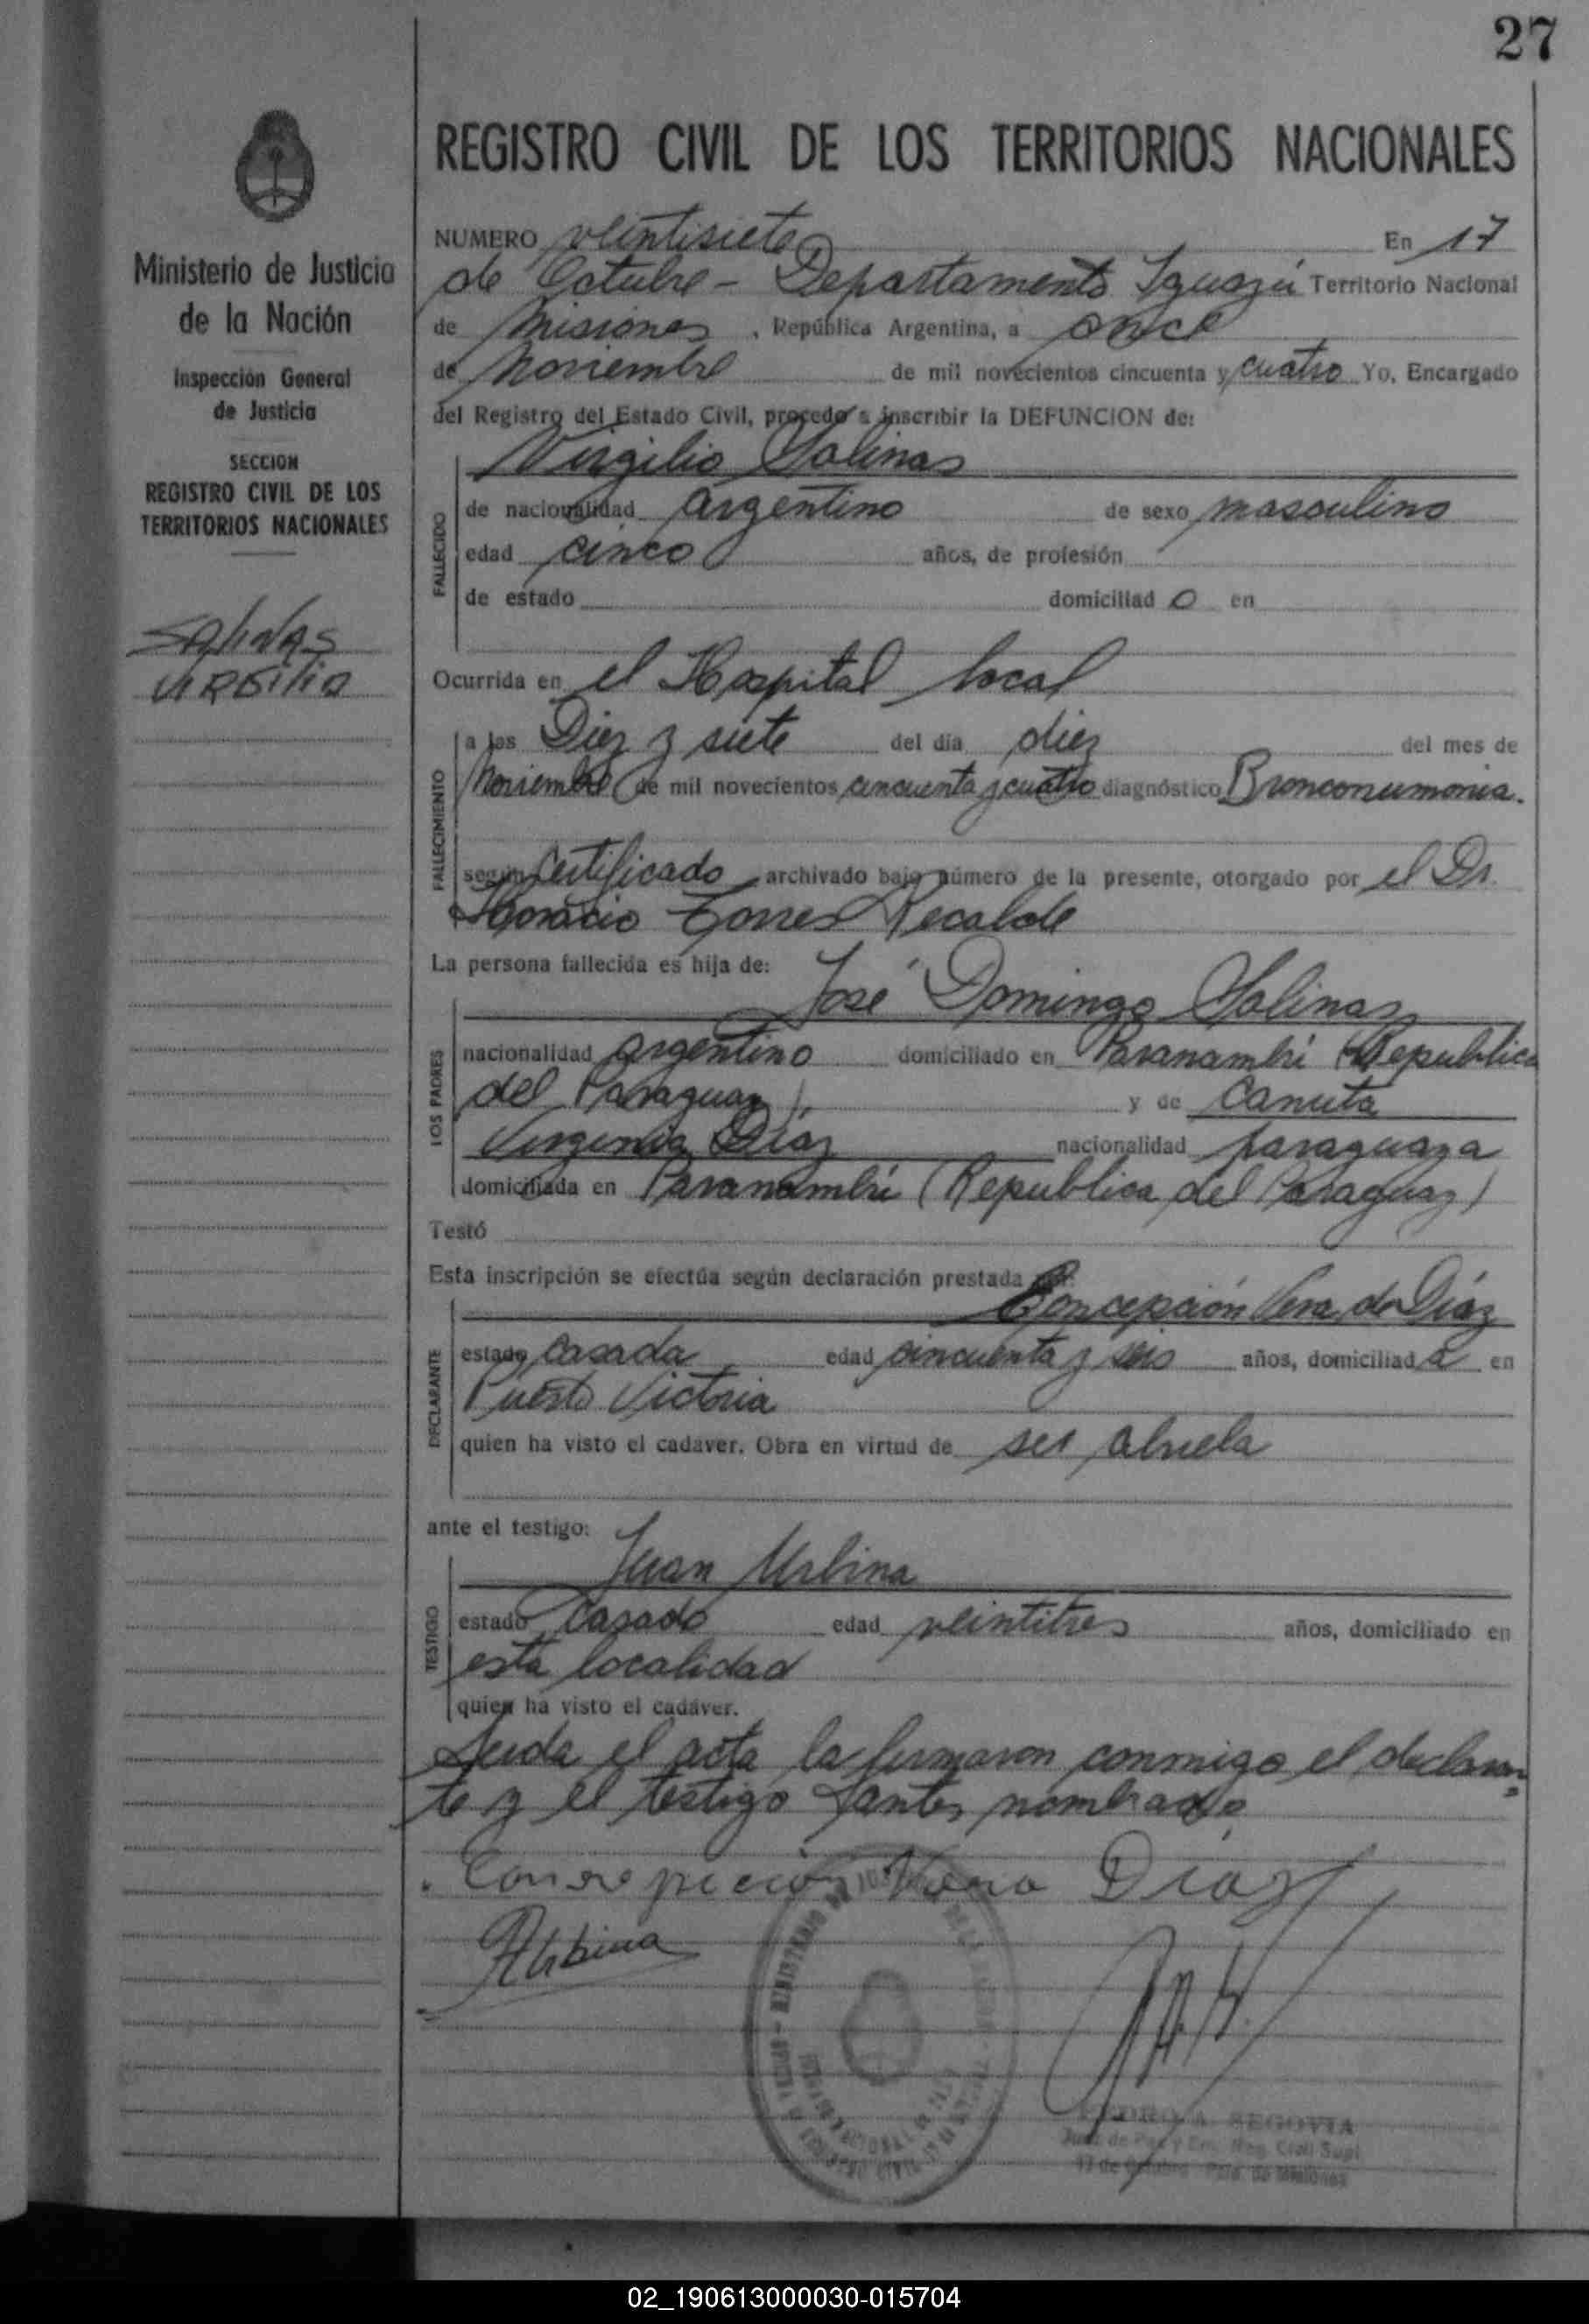 27
REGISTRO CIVIL DE LOS TERRITORIOS NACIONALES
Ministerio de Justicia
de la Nación
Inspección General
de Justicia
SECCION
REGISTRO CIVIL DE LOS
TERRITORIOS NACIONALES
SALINAS
VIRGILIO
NUMERO veintisiete En 17
de Octubre - Departamento Iguazú Territorio Nacional
de Misiones, República Argentina, a once
de Noviembre de mil novecientos cincuenta y cuatro Yo, Encargado
del Registro del Estado Civil, procedo a inscribir la DEFUNCION de:
Virgilio Salinas
FALLECIDO
de nacionalidad argentino de sexo masculino
edad cinco años, de profesión
de estado domiciliad o en
Ocurrida en el Hospital local
FALLECIMIENTO
a las Diez y siete del día diez del mes de
Noviembre de mil novecientos cincuenta y cuatro diagnóstico Bronconeumonia.
según Certificado archivado bajo número de la presente, otorgado por el Dr.
Horacio Torres Recalde
La persona fallecida es hija de: José Domingo Salinas
LOS PADRES
nacionalidad argentino domiciliado en Paranambú (Republica
del Paraguay) y de Canuta
Virginia Díaz nacionalidad paraguaya
domiciliada en Paranambú (Republica del Paraguay)
Testó
Esta inscripción se efectúa según declaración prestada por:
Concepción Vera de Díaz
DECLARANTE
estado casada edad cincuenta y seis años, domiciliad a en
Puerto Victoria
quien ha visto el cadaver. Obra en virtud de ser abuela
ante el testigo:
Juan Urbina
TESTIGO
estado Casado edad veintitres años, domiciliado en
esta localidad
quien ha visto el cadáver.
Leida el acta la firmaron conmigo el declaran
te y el testigo antes nombrado
Concepcion Vera Diaz
Urbina
PEDRO A. SEGOVIA
Juez de Paz y Enc. Reg. Civil Supl.
17 de Octubre - Pcia. de Misiones
02_190613000030-015704